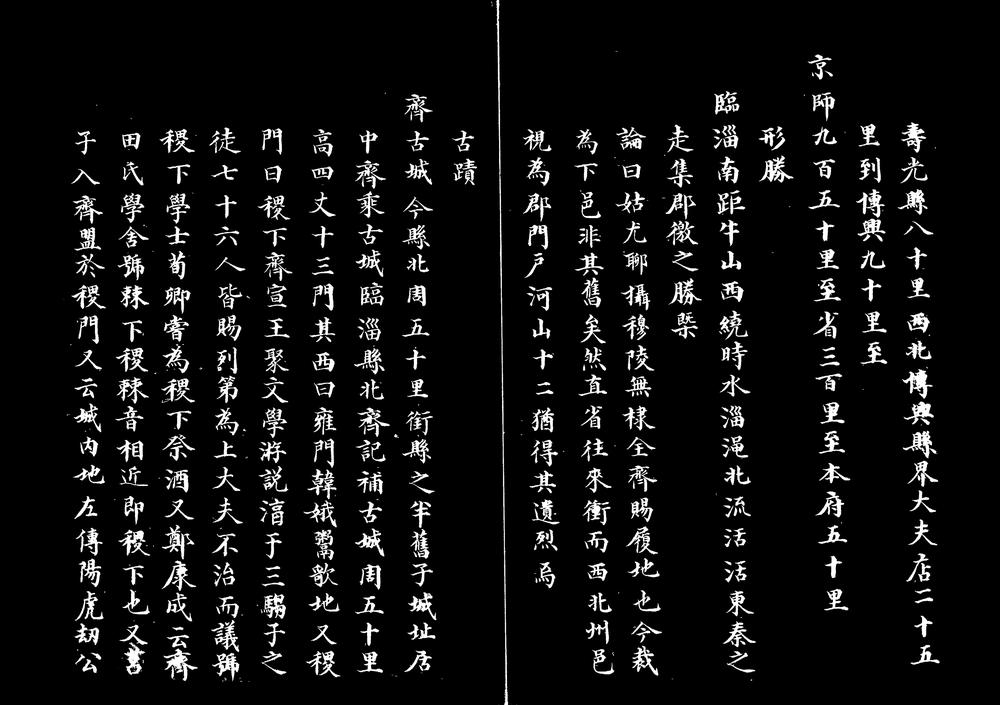 壽光縣八十里西北博興縣界大夫店二十五
里到博興九十里至
京師九百五十里至省三百里至本府五十里
形勝
臨淄南距牛山西繞時水淄澠北流活活東秦之
走集郡徼之勝槩
論曰姑尤聊攝穆陵無棣全齊賜履地也今裁
為下邑非其舊矣然直省往來衝而西北州邑
視為郡門戶河山十二猶得其遺烈焉
古蹟
齊古城今縣北周五十里銜縣之半舊子城址居
中齊乘古城臨淄縣北齊記補古城周五十里
高四丈十三門其西曰雍門韓娥鬻歌地又稷
門曰稷下齊宣王聚文學游説淯于三騶子之
徒七十六人皆賜列第為上大夫不治而議號
稷下學士荀卿嘗為稷下祭酒又鄭康成云齊
田氏學舍號棘下稷棘音相近即稷下也又莒
子入齊盟於稷門又云城內地左傳陽虎刼公